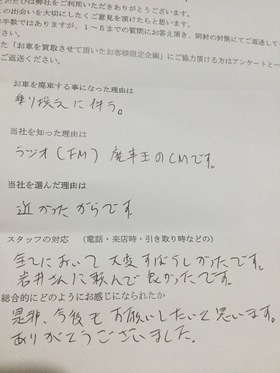 のたびは弊社をご利用いただきありがとうございます。
の出会いを大切にしたくご意見を頂けたらと思います。
手数ではありますが、1～5までの質問にお答え頂き、同封の封筒にてご返送して
た「お車を買取させて頂いたお客様限定企画」にご協力頂ける方はアンケートと一
ご返送ください。
お車を廃車する事になった理由は
乗り換えに伴う。
当社を知った理由は
ラジオ(FM)廃車王のCMです。
当社を選んだ理由は
近かったからです
スタッフの対応 (電話・来店時・引き取り時などの)
全てにおいて大変すばらしかったです。
岩井さんに頼んで良かったです。
総合的にどのようにお感じになられたか
是非、今後もお願いしたいと思います。
ありがとうございました。